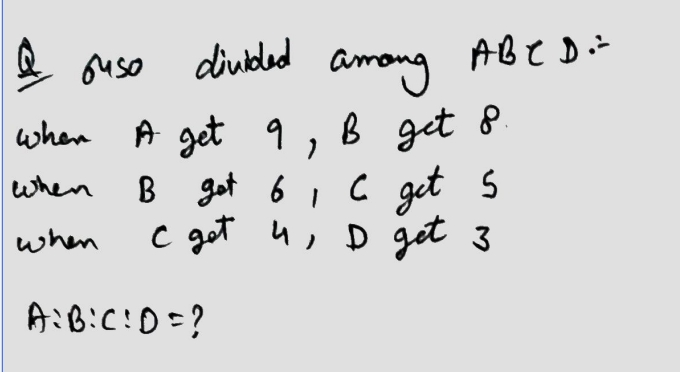 Q divided among A B C D :-
when A get 9, B get 8.
when B get 6, C get 5
when C get 4, D get 3
A:B:C:D=?